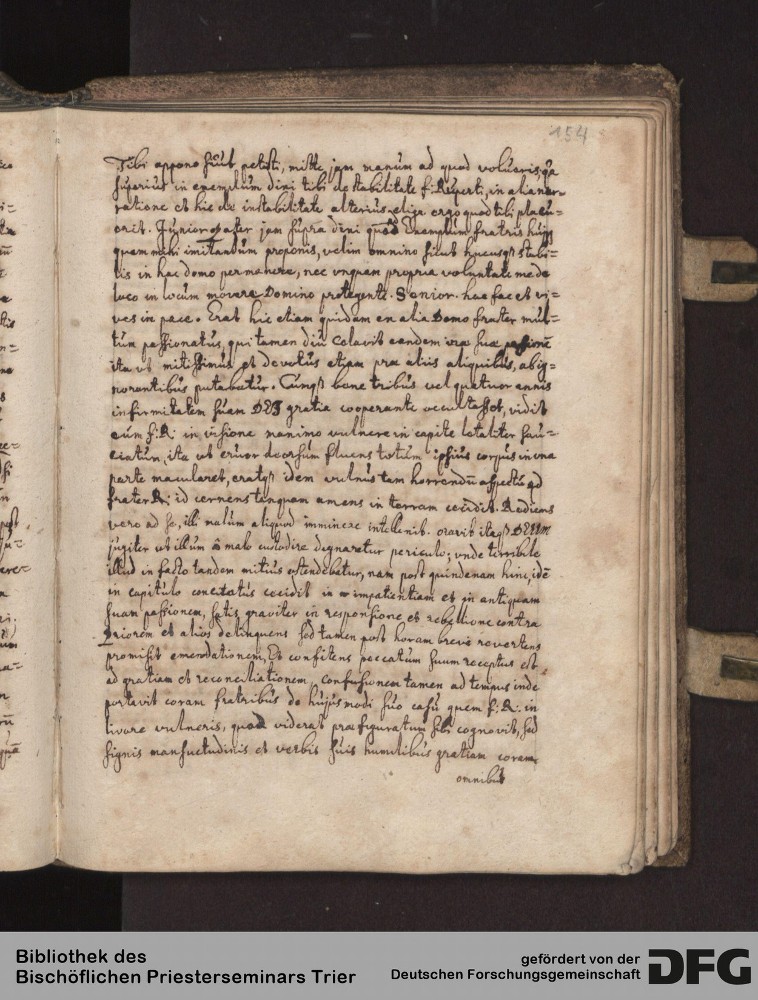 154
Tibi appono sicut petisti, mitte jam manum ad quod volueris, qa
superius in exemplum dixi tibi de stabilitate f: Ruperti, in alia nar-
ratione et hic de instabilitate alterius, elige ergo quod tibi placu-
erit. Junior pater jam supra dixi quod Exemplum fratris hujus
quem mihi imitandum proponis, velim omnino sicut hucusq stabi-
lis in hac domo permanere, nec unquam propria voluntate me de
loco in locum movere Domino protegente. Senior. hac fac et vi-
ves in pace. Erat hic etiam quidam ex alia Domo frater mul-
tum passionatus, qui tamen diu Celavit eandem iræ suæ passionē
ita ut mitissimus et devotus etiam præ aliis aliquibus, ab ig-
norantibus putabatur. Cumq bene tribus vel quatuor annis
infirmitatem suam DEI gratia cooperante occultasset, vidit
eum f: R: in visione maximo vulnere in capite letaliter sau-
ciatum, ita ut cruor deorsum fluens totum ipsius corpus in una
parte macularet, eratq idem vulnus tam horrendū aspectu qd
frater R: id cernens tanquam amens in terram cecidit. Rediens
vero ad se, illi malum aliquod imminere intellexit. oravit itaq DEUM
jugiter ut illum â malo custodire dignaretur periculo; unde terribile
illud in facto tandem mitius ostendebatur, nam post quindenam hinc, idē
in capitulo concitatus cecidit in impatientiam et in antiquam
suam passionem, satis graviter in responsione et rebellione contra
Priorem et alios delinquens sed tamen post horam breve revertens
promisit emendationem, Et confitens peccatum suum receptus est
ad gratiam et reconciliationem, confusionem tamen ad tempus inde
portavit coram fratribus de hujusmodi suo casu quem f: R: in
livore vulneris, quod viderat præfiguratum sibi cognovit, sed
signis mansuetudinis et verbis suis humilibus gratiam coram
omnibus
Bibliothek des
Bischöflichen Priesterseminars Trier
gefördert von der
Deutschen Forschungsgemeinschaft
DFG